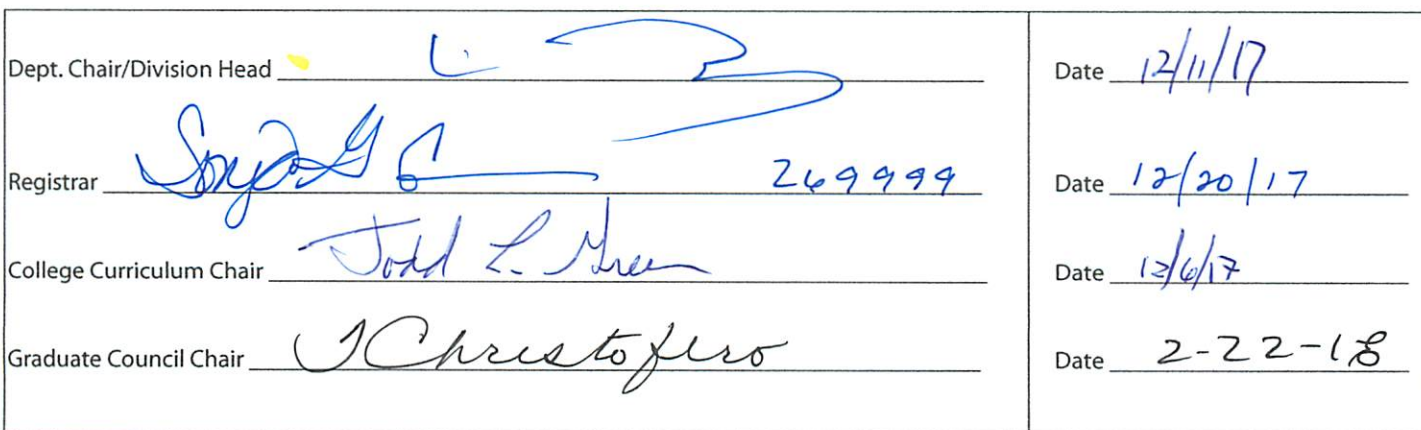 Dept. Chair/Division Head Date 12/11/17
Registrar 269999 Date 12/20/17
College Curriculum Chair Todd L. Green Date 12/6/17
Graduate Council Chair TChristofero Date 2-22-18